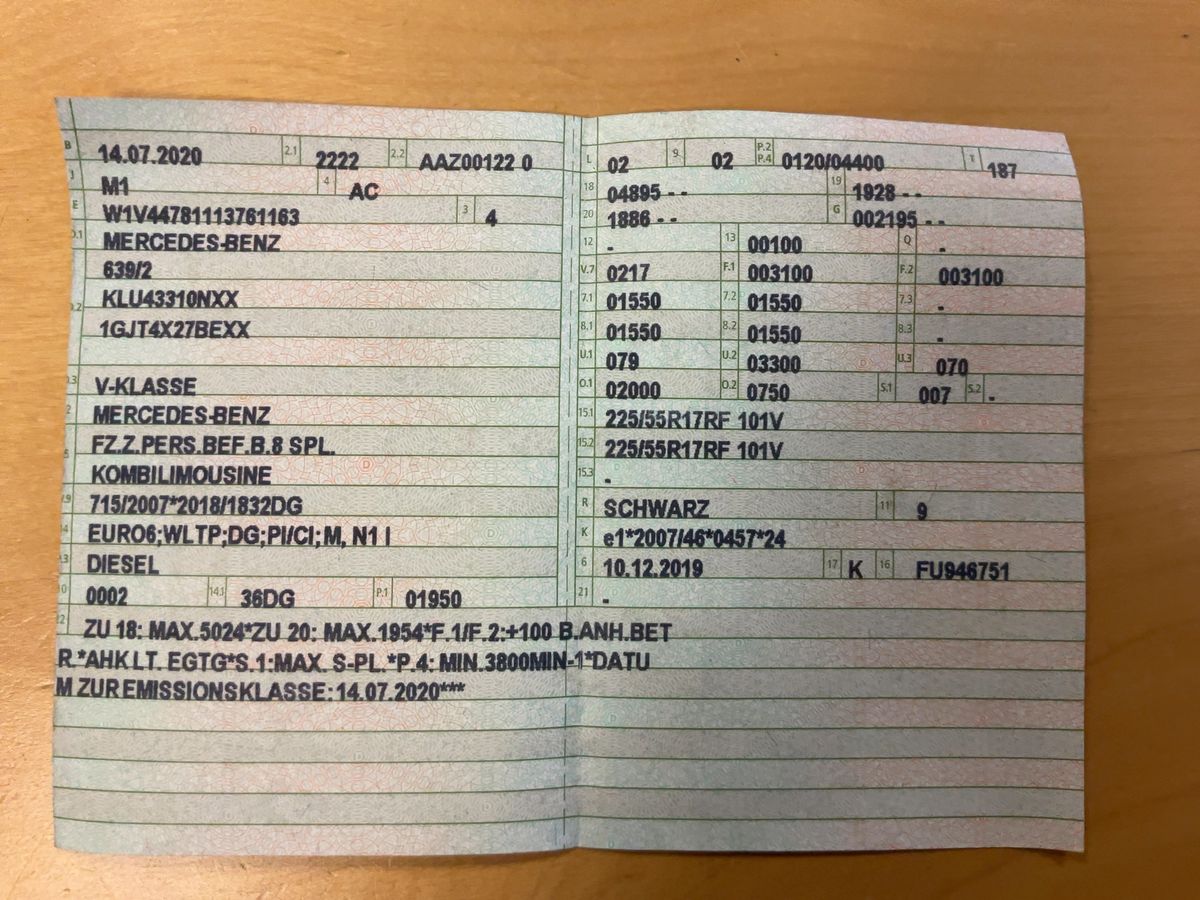 B 14.07.2020 2.1 2222 2.2 AAZ00122 0
J M1 4 AC
E W1V44781113761163 3 4
D.1 MERCEDES-BENZ
639/2
KLU43310NXX
D.2 1GJT4X27BEXX
D.3 V-KLASSE
2 MERCEDES-BENZ
FZ.Z.PERS.BEF.B.8 SPL.
5 KOMBILIMOUSINE
V.9 715/2007*2018/1832DG
14 EURO6;WLTP;DG;PI/CI;M, N1 I
P.3 DIESEL
10 0002 14.1 36DG P.1 01950
L 02 9 02 P.2 P.4 0120/04400 T 187
18 04895 - - 19 1928 - -
20 1886 - - G 002195 - -
12 - 13 00100 Q -
V.7 0217 F.1 003100 F.2 003100
7.1 01550 7.2 01550 7.3 -
8.1 01550 8.2 01550 8.3 -
U.1 079 U.2 03300 U.3 070
O.1 02000 O.2 0750 S.1 007 S.2 -
15.1 225/55R17RF 101V
15.2 225/55R17RF 101V
15.3 -
R SCHWARZ 11 9
K e1*2007/46*0457*24
6 10.12.2019 17 K 16 FU946751
21 -
22 ZU 18: MAX.5024*ZU 20: MAX.1954*F.1/F.2:+100 B.ANH.BET
R.*AHK LT. EGTG*S.1:MAX. S-PL.*P.4: MIN.3800MIN-1*DATU
M ZUR EMISSIONSKLASSE: 14.07.2020***